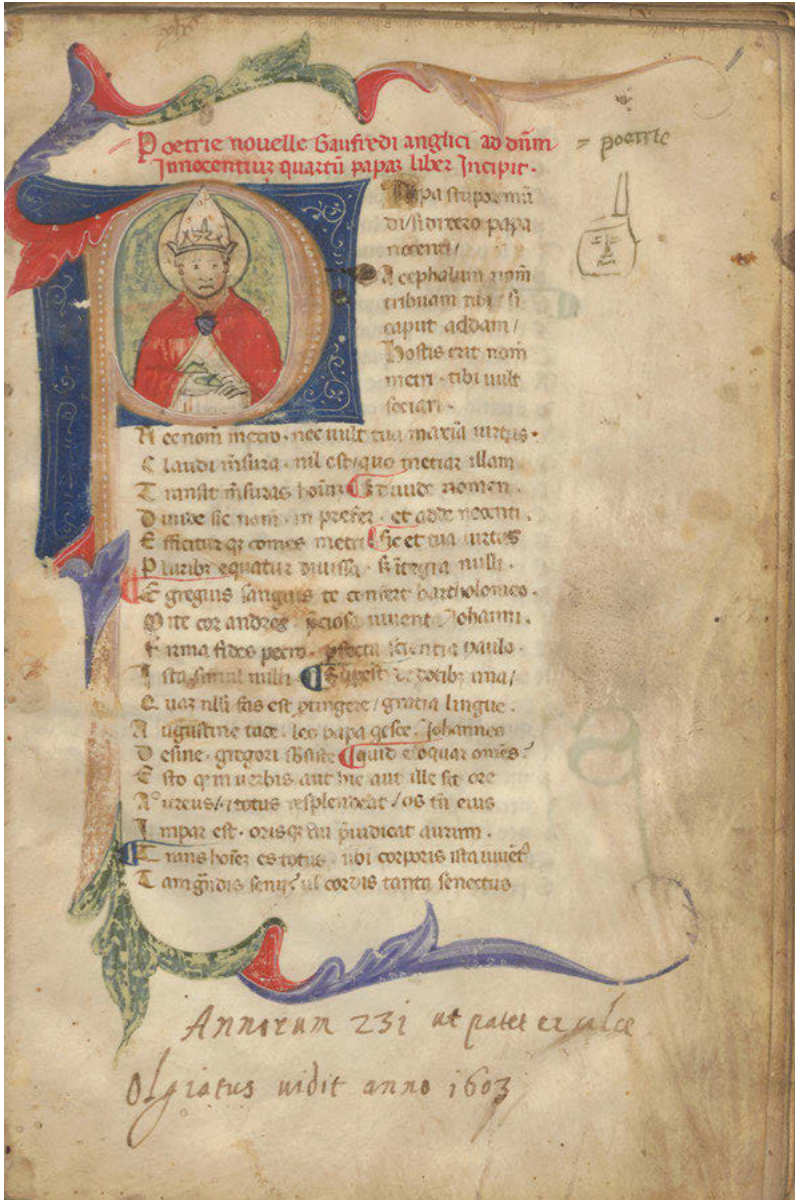 Poetrie nouelle Gaufredi anglici ad dnm
Innocentium quartū papaz liber Incipit.
= poetrie
Papa stupor mū
di / si dixero papa
nocenti /
Acephalum nom
tribuam tibi / si
caput addam /
Hostis erit nom
metri · tibi uult
sociari ·
Nec nom metro · nec uult tua maxīa uirtus ·
Claudi msura · nil est / quo metiar illam
Transit msuras hoīuz Diuide nomen ·
Diuide sic nom · in prefer · et adde nocenti ·
Efficiturqz comes metri Sic et tua uirtus
Pluribz equatur diuissa · si ītegra nulli ·
Egregius sanguis te confert bartholomeo ·
Mite cor andree · p̄ciosa iuuent Iohanni ·
Firma fides petro · pfecta scientia paulo ·
Ista simul nulli · Supest de dotibz una /
Quaz nlli fas est ptingere / gratia lingue ·
Augustine tace · leo papa qesce · Iohannes
Desine · gregori sbsiste quid eloquar omēs ?
Esto qm uerbis aut hic aut ille sit ore
Aureus / totus resplendeat / os tn eius
Impar est · orisqz tui p̄iudicat aurum ·
Trans hoīez es totus · ubi corporis ista iuuēt
Tam grandis seniū ul cordis tanta senectus
Annorum 231 ut patet ex calce
Olgiatus uidit anno 1603